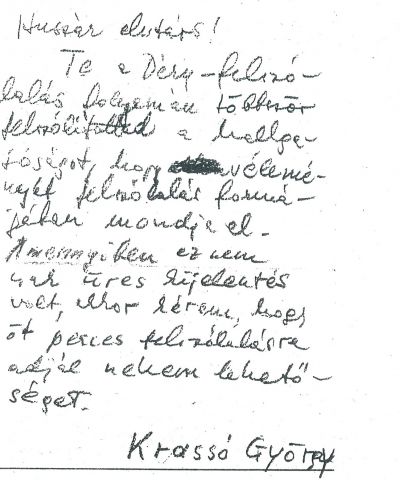 Huszár elvtárs!
Te a Déry-felszó-
lalás folyamán többször
felszólítottad a hallga-
tóságot, hogy vélemé-
nyét felszólalás formá-
jában mondja el.
Amennyiben ez nem
csak üres kijelentés
volt, akkor kérem, hogy
öt perces felszólalásra
adjál nekem lehető-
séget.
Krassó György